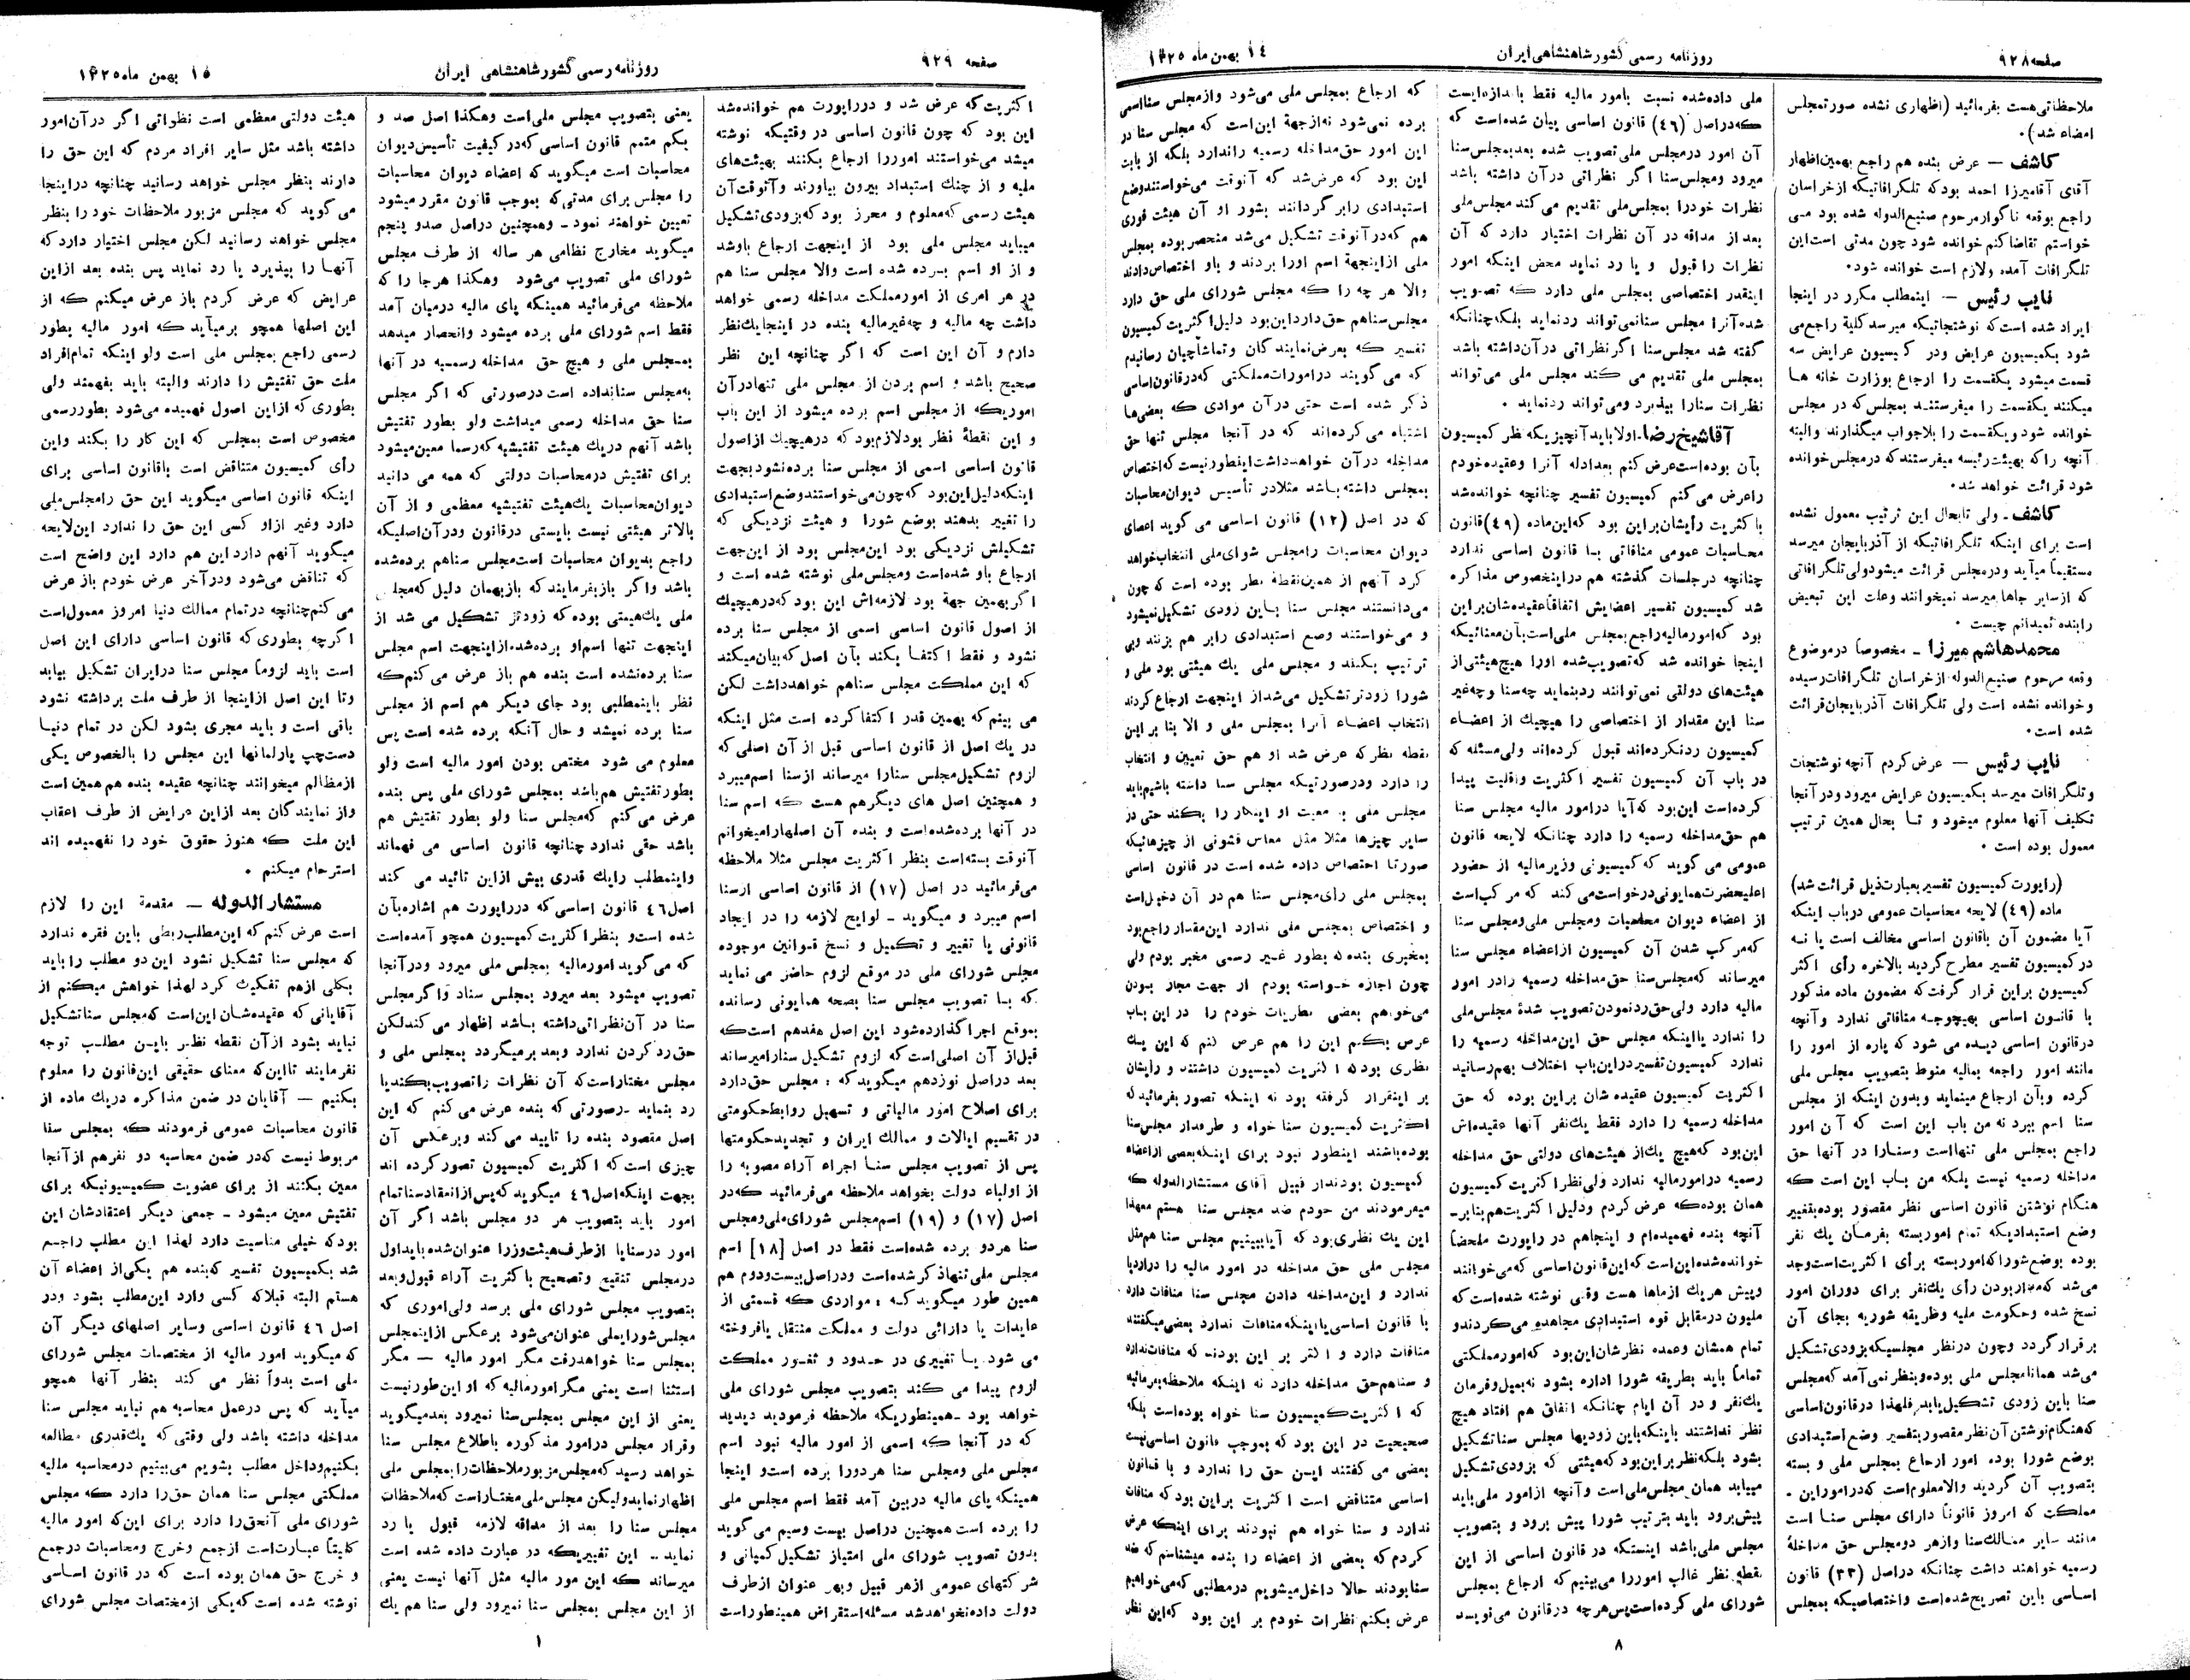 صفحه ۹۲۸
روزنامه رسمی کشور شاهنشاهی ایران
۱۴ بهمن ماه ۱۳۲۵
ملاحظاتی هست بفرمائید (اظهاری نشده صورتمجلس
امضاء شد).
کاشف — عرض بنده هم راجع بهمین اظهار
آقای آقامیرزا احمد بود که تلگرافاتیکه از خراسان
راجع بوقعه ناگوار مرحوم صنیع‌الدوله شده بود می
خواستم تقاضا کنم خوانده شود چون مدتی است این
تلگرافات آمده ولازم است خوانده شود.
نایب رئیس — اینمطلب مکرر در اینجا
ایراد شده است که نوشتجاتیکه میرسد کلیة راجع می
شود بکمیسیون عرایض ودر کمیسیون عرایض سه
قسمت میشود یکقسمت را ارجاع بوزارت خانه ها
میکنند یکقسمت را میفرستند بمجلس که در مجلس
خوانده شود و یکقسمت را بلاجواب میگذارند والبته
آنچه را که بهیئت رئیسه میفرستند که درمجلس خوانده
شود قرائت خواهد شد.
کاشف ـ ولی تابحال این ترتیب معمول نشده
است برای اینکه تلگرافاتیکه از آذربایجان میرسد
مستقیماً میآید ودرمجلس قرائت میشود ولی تلگرافاتی
که از سایر جاها میرسد نمیخوانند وعلت این تبعیض
رابنده نمیدانم چیست.
محمد هاشم میرزا ـ مخصوصاً درموضوع
وقعه مرحوم صنیع‌الدوله از خراسان تلگرافات رسیده
وخوانده نشده است ولی تلگرافات آذربایجان قرائت
شده است.
نایب رئیس — عرض کردم آنچه نوشتجات
وتلگرافات میرسد بکمیسیون عرایض میرود ودر آنجا
تکلیف آنها معلوم میخود و تا بحال همین ترتیب
معمول بوده است.
(راپورت کمیسیون تفسیر بعبارت ذیل قرائت شد)
ماده (۴۹) لایحه محاسبات عمومی درباب اینکه
آیا مضمون آن باقانون اساسی مخالف است یا نه
در کمیسیون تفسیر مطرح گردید بالاخره رأی اکثر
کمیسیون براین قرار گرفت که مضمون ماده مذکور
با قانون اساسی بهیچوجه منافاتی ندارد وآنچه
درقانون اساسی دیده می شود که پاره از امور را
مانند امور راجعه بمالیه منوط بتصویب مجلس ملی
کرده وبآن ارجاع مینماید وبدون اینکه از مجلس
سنا اسم ببرد نه من باب این است که آن امور
راجع بمجلس ملی تنهااست وسنارا در آنها حق
مداخله رسمیه نیست بلکه من باب این است که
هنگام نوشتن قانون اساسی نظر مقصور بوده بتغییر
وضع استبدادیکه تمام امور بسته بفرمان یك نفر
بوده بوضع شورا که امور بسته برأی اکثریت است وجد
می‌شد که مدار بودن رأی یك‌نفر برای دوران امور
نسخ شده وحکومت ملیه وطریقه شوریه بجای آن
برقرار گردد وچون درنظر مجلسیکه بزودی تشکیل
می‌شد همانا مجلس ملی بوده و بنظر نمی‌آمد که مجلس
سنا باین زودی تشکیل یابد فلهذا درقانون اساسی
که هنگام نوشتن آن نظر مقصور بتفسیر وضع استبدادی
بوضع شورا بوده امور ارجاع بمجلس ملی و بسته
بتصویب آن گردید والامعلوم است که در امور این
مملکت که امروز قانوناً دارای مجلس سنا است
مانند سایر ممالك سنا وازهر دومجلس حق مداخلهٔ
رسمیه خواهند داشت چنانکه دراصل (۴۳) قانون
اساسی باین تصریح شده است واختصاصیکه بمجلس
ملی داده شده نسبت بامور مالیه فقط باندازه‌ایست
که دراصل (۴۶) قانون اساسی بیان شده است که
آن امور درمجلس ملی تصویب شده بعد بمجلس سنا
میرود ومجلس سنا اگر نظراتی در آن داشته باشد
نظرات خودرا بمجلس ملی تقدیم می کند مجلس ملی
بعد از مداقه در آن نظرات اختیار دارد که آن
نظرات را قبول و یا رد نماید محض اینکه امور
اینقدر اختصاصی بمجلس ملی دارد که تصویب
شده آنرا مجلس سنا نمی‌تواند ردنماید بلکه چنانکه
گفته شد مجلس سنا اگر نظراتی در آن داشته باشد
بمجلس ملی تقدیم می کند مجلس ملی می‌تواند
نظرات سنارا بپذیرد ومی‌تواند ردنماید.
آقا شیخ رضا ـ اولا باید آنچیزیکه نظر کمیسیون
بآن بوده است عرض کنم بعد ادله آنرا وعقیده خودم
راعرض می کنم کمیسیون تفسیر چنانچه خوانده شد
با کثریت رأیشان براین بود که این ماده (۴۹) قانون
محاسبات عمومی منافاتی با قانون اساسی ندارد
چنانچه درجلسات گذشته هم دراینخصوص مذاکره
شد کمیسیون تفسیر اعضایش اتفاقاً عقیده شان براین
بود که امور مالیه راجع بمجلس ملی است بآن معنائیکه
اینجا خوانده شد که تصویب شده اورا هیچ هیئتی از
هیئت‌های دولتی نمی‌توانند ردبنماید چه سنا وچه غیر
سنا این مقدار از اختصاصی را هیچیك از اعضاء
کمیسیون ردنکرده‌اند قبول کرده‌اند ولی مسئله که
در باب آن کمیسیون تفسیر اکثریت واقلیت پیدا
کرده است این بود که آیا درامور مالیه مجلس سنا
هم حق مداخله رسمیه را دارد چنانکه لایحه قانون
عمومی می گوید که کمیسیونی وزیرمالیه از حضور
اعلیحضرت همایونی درخواست می کند که مرکب است
از اعضاء دیوان محاسبات ومجلس ملی ومجلس سنا
که مرکب شدن آن کمیسیون از اعضاء مجلس سنا
میرساند که مجلس سنا حق مداخله رسمیه رادر امور
مالیه دارد ولی حق ردنمودن تصویب شدهٔ مجلس ملی
را ندارد یا اینکه مجلس حق این مداخله رسمیه را
ندارد کمیسیون تفسیر در این باب اختلاف بهم رسانید
اکثریت کمیسیون عقیده شان براین بوده که حق
مداخله رسمیه را دارد فقط یك نفر آنها عقیده‌اش
این بود که هیچ یك از هیئت‌های دولتی حق مداخله
رسمیه درامور مالیه ندارد ولی نظر اکثریت کمیسیون
همان بوده که عرض کردم ودلیل اکثریت هم بنابر ـ
آنچه بنده فهمیده‌ام و اینجا هم در راپورت ملخصاً
خوانده شده این است که این قانون اساسی که می‌خوانند
وپیش هریك از ماها هست وقتی نوشته شده است که
ملیون درمقابل قوه استبدادی مجاهده می‌کردند و
تمام همشان وعمده نظرشان این بود که امور مملکتی
تماماً باید بطریقه شورا اداره بشود نه بمیل وفرمان
یك نفر و در آن ایام چنانکه اتفاق هم افتاد هیچ
نظر نداشتند باینکه باین زودیها مجلس سنا تشکیل
بشود بلکه نظر براین بود که هیئتی که بزودی تشکیل
میباید همان مجلس ملی است وآنچه ازامور ملی باید
پیش برود باید بترتیب شورا پیش برود و بتصویب
مجلس ملی باشد اینستکه در قانون اساسی از این
نقطه نظر غالب امور را می‌بینیم که ارجاع بمجلس
شورای ملی کرده است پس هر چه درقانون می‌نویسد
که ارجاع بمجلس ملی می‌شود وازمجلس سنا اسمی
برده نمی‌شود نه از جهة این است که مجلس سنا در
این امور حق مداخله رسمیه راندارد بلکه از بابت
این بود که عرض شد که آنوقت می‌خواستند وضع
استبدادی رابر گردانند بشور او آن هیئت فوری
هم که درآنوقت تشکیل می‌شد منحصر بوده بمجلس
ملی ازاینجهة اسم اورا بردند و باو اختصاص دادند
والا هر چه را که مجلس شورای ملی حق دارد
مجلس سناهم حق دارد این بود دلیل اکثریت کمیسیون
تفسیر که بعرض نمایندگان وتماشاچیان رسانیدم
که می گویند درامورات مملکتی که در قانون اساسی
ذکر شده است حتی در آن موادی که بعضی‌ها
اشتباه می کرده‌اند که در آنجا مجلس تنها حق
مداخله در آن خواهد داشت اینطور نیست که اختصاص
بمجلس داشته باشد مثلا در تأسیس دیوان محاسبات
که در اصل (۱۲) قانون اساسی می گوید اعضای
دیوان محاسبات رامجلس شورای ملی انتخاب خواهد
کرد آنهم از همین نقطه نظر بوده است که چون
می‌دانستند مجلس سنا باین زودی تشکیل نمیشود
و می‌خواستند وضع استبدادی رابر هم بزنند وبی
ترتیب بکنند و مجلس ملی یك هیئتی بود ملی و
شورا زودتر تشکیل می‌شد از اینجهت ارجاع کردند
انتخاب اعضاء آنرا بمجلس ملی و الا بنا بر این
نقطه نظر که عرض شد او هم حق تعیین و انتخاب
را دارد ودرصورتیکه مجلس سنا داشته باشیم باید
مجلس ملی به معیت او اینکار را بکند حتی در
سایر چیزها مثلا مثل معاس قشونی از چیزهائیکه
صورتا اختصاص داده شده است در قانون اساسی
بمجلس ملی رأی مجلس سنا هم در آن دخیل است
و اختصاص بمجلس ملی ندارد این مقدار راجع بود
بمخبری بنده که بطور غیر رسمی مخبر بودم ولی
چون اجازه خواسته بودم از جهت مجاز بودن
می‌خواهم بعضی نظریات خودم را در این باب
عرض بکنم این را هم عرض کنم که این یك
نظری بود که اکثریت کمیسیون داشتند و رأیشان
بر اینقرار گرفته بود نه اینکه تصور بفرمائید که
اکثریت کمیسیون سنا خواه و طرفدار مجلس سنا
بوده باشند اینطور نبود برای اینکه بعضی از اعضاء
کمیسیون بودند از قبیل آقای مستشارالدوله که
میفرمودند من خودم ضد مجلس سنا هستم معهذا
این یك نظری بود که آیا ببینیم مجلس سنا هم مثل
مجلس ملی حق مداخله در امور مالیه را دارد یا
ندارد و این مداخله دادن مجلس سنا منافات دارد
با قانون اساسی یا اینکه منافات ندارد بعضی میگفتند
منافات دارد و اکثر بر این بودند که منافات ندارد
و سناهم حق مداخله دارد نه اینکه ملاحظه بفرمائید
که اکثریت کمیسیون سنا خواه بوده است بلکه
صحبت در این بود که بموجب قانون اساسی نیست
بعضی می گفتند این حق را ندارد و با قانون
اساسی متناقض است اکثریت براین بود که منافات
ندارد و سنا خواه هم نبودند برای اینکه عرض
کردم که بعضی از اعضاء را بنده میشناسم که ضد
سنا بودند حالا داخل میشویم در مطلبی که می‌خواهیم
عرض بکنم نظرات خودم بر این بود که این نظر
۸
صفحه ۹۲۹
روزنامه رسمی کشور شاهنشاهی ایران
۱۵ بهمن ماه ۱۳۲۵
اکثریت که عرض شد و در راپورت هم خوانده شد
این بود که چون قانون اساسی در وقتیکه نوشته
میشد می‌خواستند اموررا ارجاع بکنند بهیئت‌های
ملیه و از چنك استبداد بیرون بیاورند وآنوقت آن
هیئت رسمی که معلوم و محرز بود که بزودی تشکیل
میباید مجلس ملی بود از اینجهت ارجاع باوشد
و از او اسم برده شده است والا مجلس سنا هم
در هر امری از امور مملکت مداخله رسمی خواهد
داشت چه مالیه و چه غیرمالیه بنده در اینجا یك نظر
دارم و آن این است که اگر چنانچه این نظر
صحیح باشد و اسم بردن از مجلس ملی تنها در آن
اموریکه از مجلس اسم برده میشود از این باب
و این نقطهٔ نظر بود لازم بود که درهیچیك ازاصول
قانون اساسی اسمی از مجلس سنا برده نشود بجهت
اینکه دلیل این بود که چون می‌خواستند وضع استبدادی
را تغییر بدهند بوضع شورا و هیئت نزدیکی که
تشکیلش نزدیکی بود این مجلس بود از این جهت
ارجاع باو شده است ومجلس ملی نوشته شده است و
اگر بهمین جهة بود لازمه‌اش این بود که درهیچیك
از اصول قانون اساسی اسمی از مجلس سنا برده
نشود و فقط اکتفا بکند بآن اصل که بیان میکند
که این مملکت مجلس سناهم خواهد داشت لکن
می بینم که بهمین قدر اکتفا کرده است مثل اینکه
در یك اصل از قانون اساسی قبل از آن اصلی که
لزوم تشکیل مجلس سنارا میرساند از سنا اسم میبرد
و همچنین اصل های دیگر هم هست که اسم سنا
در آنها برده شده است و بنده آن اصلهارا میخوانم
آنوقت بسته است بنظر اکثریت مجلس مثلا ملاحظه
می‌فرمائید در اصل (۱۷) از قانون اساسی از سنا
اسم میبرد و میگوید ـ لوایح لازمه را در ایجاد
قانونی یا تغییر و تکمیل و نسخ قوانین موجوده
مجلس شورای ملی در موقع لزوم حاضر می نماید
که با تصویب مجلس سنا بصحه همایونی رسانده
بموقع اجرا گذارده شود این اصل هفدهم است که
قبل از آن اصلی است که لزوم تشکیل سنارا میرساند
بعد دراصل نوزدهم میگوید که: مجلس حق دارد
برای اصلاح امور مالیاتی و تسهیل روابط حکومتی
در تقسیم ایالات و ممالك ایران و تحدید حکومتها
پس از تصویب مجلس سنا اجراء آراء مصوبه را
از اولیاء دولت بخواهد ملاحظه می‌فرمائید که در
اصل (۱۷) و (۱۹) اسم مجلس شورای ملی ومجلس
سنا هردو برده شده است فقط در اصل [۱۸] اسم
مجلس ملی تنها ذکر شده است ودراصل بیست ودوم هم
همین طور میگوید که: مواردی که قسمتی از
عایدات یا دارائی دولت و مملکت منتقل یا فروخته
می شود یا تغییری در حدود و ثغور مملکت
لزوم پیدا می کند بتصویب مجلس شورای ملی
خواهد بود ـ همینطوریکه ملاحظه فرمودید دیدید
که در آنجا که اسمی از امور مالیه نبود اسم
مجلس ملی ومجلس سنا هردورا برده است و اینجا
همینکه پای مالیه دربین آمد فقط اسم مجلس ملی
را برده است همچنین دراصل بیست وسیم می گوید
بدون تصویب شورای ملی امتیاز تشکیل کمپانی و
شرکتهای عمومی ازهر قبیل وبهر عنوان ازطرف
دولت داده نخواهد شد مسئله استقراض همینطور است
یعنی بتصویب مجلس ملی است وهکذا اصل صد و
یکم متمم قانون اساسی که در کیفیت تأسیس دیوان
محاسبات است میگوید که اعضاء دیوان محاسبات
را مجلس برای مدتی که بموجب قانون مقرر میشود
تعیین خواهند نمود ـ وهمچنین دراصل صدو پنجم
میگوید مخارج نظامی هر ساله از طرف مجلس
شورای ملی تصویب می‌شود وهکذا هرجا را که
ملاحظه می‌فرمائید همینکه پای مالیه درمیان آمد
فقط اسم شورای ملی برده میشود وانحصار میدهد
بمجلس ملی و هیچ حق مداخله رسمیه در آنها
به مجلس سنا نداده است درصورتی که اگر مجلس
سنا حق مداخله رسمی میداشت ولو بطور تفتیش
باشد آنهم دریك هیئت تفتیشیه که رسما معین میشود
برای تفتیش درمحاسبات دولتی که همه می دانید
دیوان محاسبات یك هیئت تفتیشیه معظمی و از آن
بالاتر هیئتی نیست بایستی درقانون ودر آن اصلیکه
راجع بدیوان محاسبات است مجلس سناهم برده شده
باشد واگر بازبفرمایند که بازبهمان دلیل که مجلس
ملی یك هیئتی بوده که زودتر تشکیل می شد از
اینجهت تنها اسم او برده شده از اینجهت اسم مجلس
سنا برده نشده است بنده هم باز عرض می کنم که
نظر باینمطلبی بود جای دیگر هم اسم از مجلس
سنا برده نمیشد و حال آنکه برده شده است پس
معلوم می شود مختص بودن امور مالیه است ولو
بطور تفتیش هم باشد بمجلس شورای ملی پس بنده
عرض می کنم که مجلس سنا ولو بطور تفتیش هم
باشد حقی ندارد چنانچه قانون اساسی می فهماند
واینمطلب رایك قدری بیش از این تائید می کند
اصل ۴۶ قانون اساسی که در راپورت هم اشاره بآن
شده است و بنظر اکثریت کمیسیون همچو آمده است
که می گوید امور مالیه بمجلس ملی میرود ودرآنجا
تصویب میشود بعد میرود بمجلس سنا و اگر مجلس
سنا در آن نظراتی داشته باشد اظهار می کند لکن
حق رد کردن ندارد وبعد برمیگردد بمجلس ملی و
مجلس مختار است که آن نظرات را تصویب بکند یا
رد بنماید ـ درصورتی که بنده عرض می کنم که این
اصل مقصود بنده را تایید می کند وبرعکس آن
چیزی است که اکثریت کمیسیون تصور کرده اند
بجهت اینکه اصل ۴۶ میگوید که پس ازانعقاد سنا تمام
امور باید بتصویب هر دو مجلس باشد اگر آن
امور درسنا یا ازطرف هیئت وزرا عنوان شده باید اول
درمجلس تنقیح وتصحیح با کثریت آراء قبول و بعد
بتصویب مجلس شورای ملی برسد ولی اموری که
مجلس شورایملی عنوان می‌شود برعکس از اینمجلس
بمجلس سنا خواهد رفت مگر امور مالیه — مگر
استثنا است یعنی مگر امور مالیه که او این طور نیست
یعنی از این مجلس بمجلس سنا نمیرود بعد میگوید
وقرار مجلس درامور مذکوره باطلاع مجلس سنا
خواهد رسید که مجلس مزبور ملاحظات را بمجلس ملی
اظهار نماید ولیکن مجلس ملی مختار است که ملاحظات
مجلس سنا را بعد از مداقه لازمه قبول یا رد
نماید ـ این تغییریکه در عبارت داده شده است
میرساند که این مور مالیه مثل آنها نیست یعنی
از این مجلس بمجلس سنا نمیرود ولی سنا هم یك
هیئت دولتی معظمی است نظراتی اگر در آن امور
داشته باشد مثل سایر افراد مردم که این حق را
دارند بنظر مجلس خواهد رسانید چنانچه دراینجا
می گوید که مجلس مزبور ملاحظات خود را بنظر
مجلس خواهد رسانید لکن مجلس اختیار دارد که
آنها را بپذیرد یا رد نماید پس بنده بعد ازاین
عرایض که عرض کردم باز عرض میکنم که از
این اصلها همچو برمیآید که امور مالیه بطور
رسمی راجع بمجلس ملی است ولو اینکه تمام افراد
ملت حق تفتیش را دارند والبته باید بفهمند ولی
بطوری که ازاین اصول فهمیده می‌شود بطور رسمی
مخصوص است بمجلس که این کار را بکند واین
رأی کمیسیون متناقض است باقانون اساسی برای
اینکه قانون اساسی میگوید این حق را مجلس ملی
دارد وغیر ازاو کسی این حق را ندارد این لایحه
میگوید آنهم دارد این هم دارد این واضح است
که تناقض می‌شود ودرآخر عرض خودم باز عرض
می کنم چنانچه درتمام ممالك دنیا امروز معمول است
اگرچه بطوری که قانون اساسی دارای این اصل
است باید لزوماً مجلس سنا درایران تشکیل بیابد
وتا این اصل ازاینجا از طرف ملت برداشته نشود
باقی است و باید مجری بشود لکن در تمام دنیا
دست چپ پارلمانها این مجلس را بالخصوص یکی
ازمظالم میخوانند چنانچه عقیده بنده هم همین است
واز نمایندگان بعد ازاین عرایض از طرف اعقاب
این ملت که هنوز حقوق خود را نفهمیده اند
استرحام میکنم.
مستشارالدوله — مقدمة این را لازم
است عرض کنم که این مطلب ربطی باین فقره ندارد
که مجلس سنا تشکیل نشود این دو مطلب را باید
بکلی ازهم تفکیك کرد لهذا خواهش میکنم از
آقایانی که عقیده شان این است که مجلس سنا تشکیل
نباید بشود ازآن نقطه نظر باین مطلب توجه
نفرمایند تااین که معنای حقیقی این قانون را معلوم
بکنیم — آقایان در ضمن مذاکره دریك ماده از
قانون محاسبات عمومی فرمودند که بمجلس سنا
مربوط نیست که در ضمن محاسبه دو نفرهم ازآنجا
معین بکنند از برای عضویت کمیسیونیکه برای
تفتیش معین میشود ـ جمعی دیگر اعتقادشان این
بود که خیلی مناسبت دارد لهذا این مطلب راجع
شد بکمیسیون تفسیر که بنده هم یکی از اعضاء آن
هستم البته قبلا که کسی وارد این مطلب بشود ودر
اصل ۴۶ قانون اساسی وسایر اصلهای دیگر آن
که میگوید امور مالیه از مختصات مجلس شورای
ملی است بدواً نظر می کند بنظر آنها همچو
میآید که پس درعمل محاسبه هم نباید مجلس سنا
مداخله داشته باشد ولی وقتی که یك قدری مطالعه
بکنیم وداخل مطلب بشویم می‌بینیم درمحاسبه مالیه
مملکتی مجلس سنا همان حق را دارد که مجلس
شورای ملی آنحق را دارد برای این که امور مالیه
کلیتاً عبارت است ازجمع وخرج ومحاسبات درجمع
و خرج حق همان بوده است که در قانون اساسی
نوشته شده است که یکی ازمختصات مجلس شورای
۱